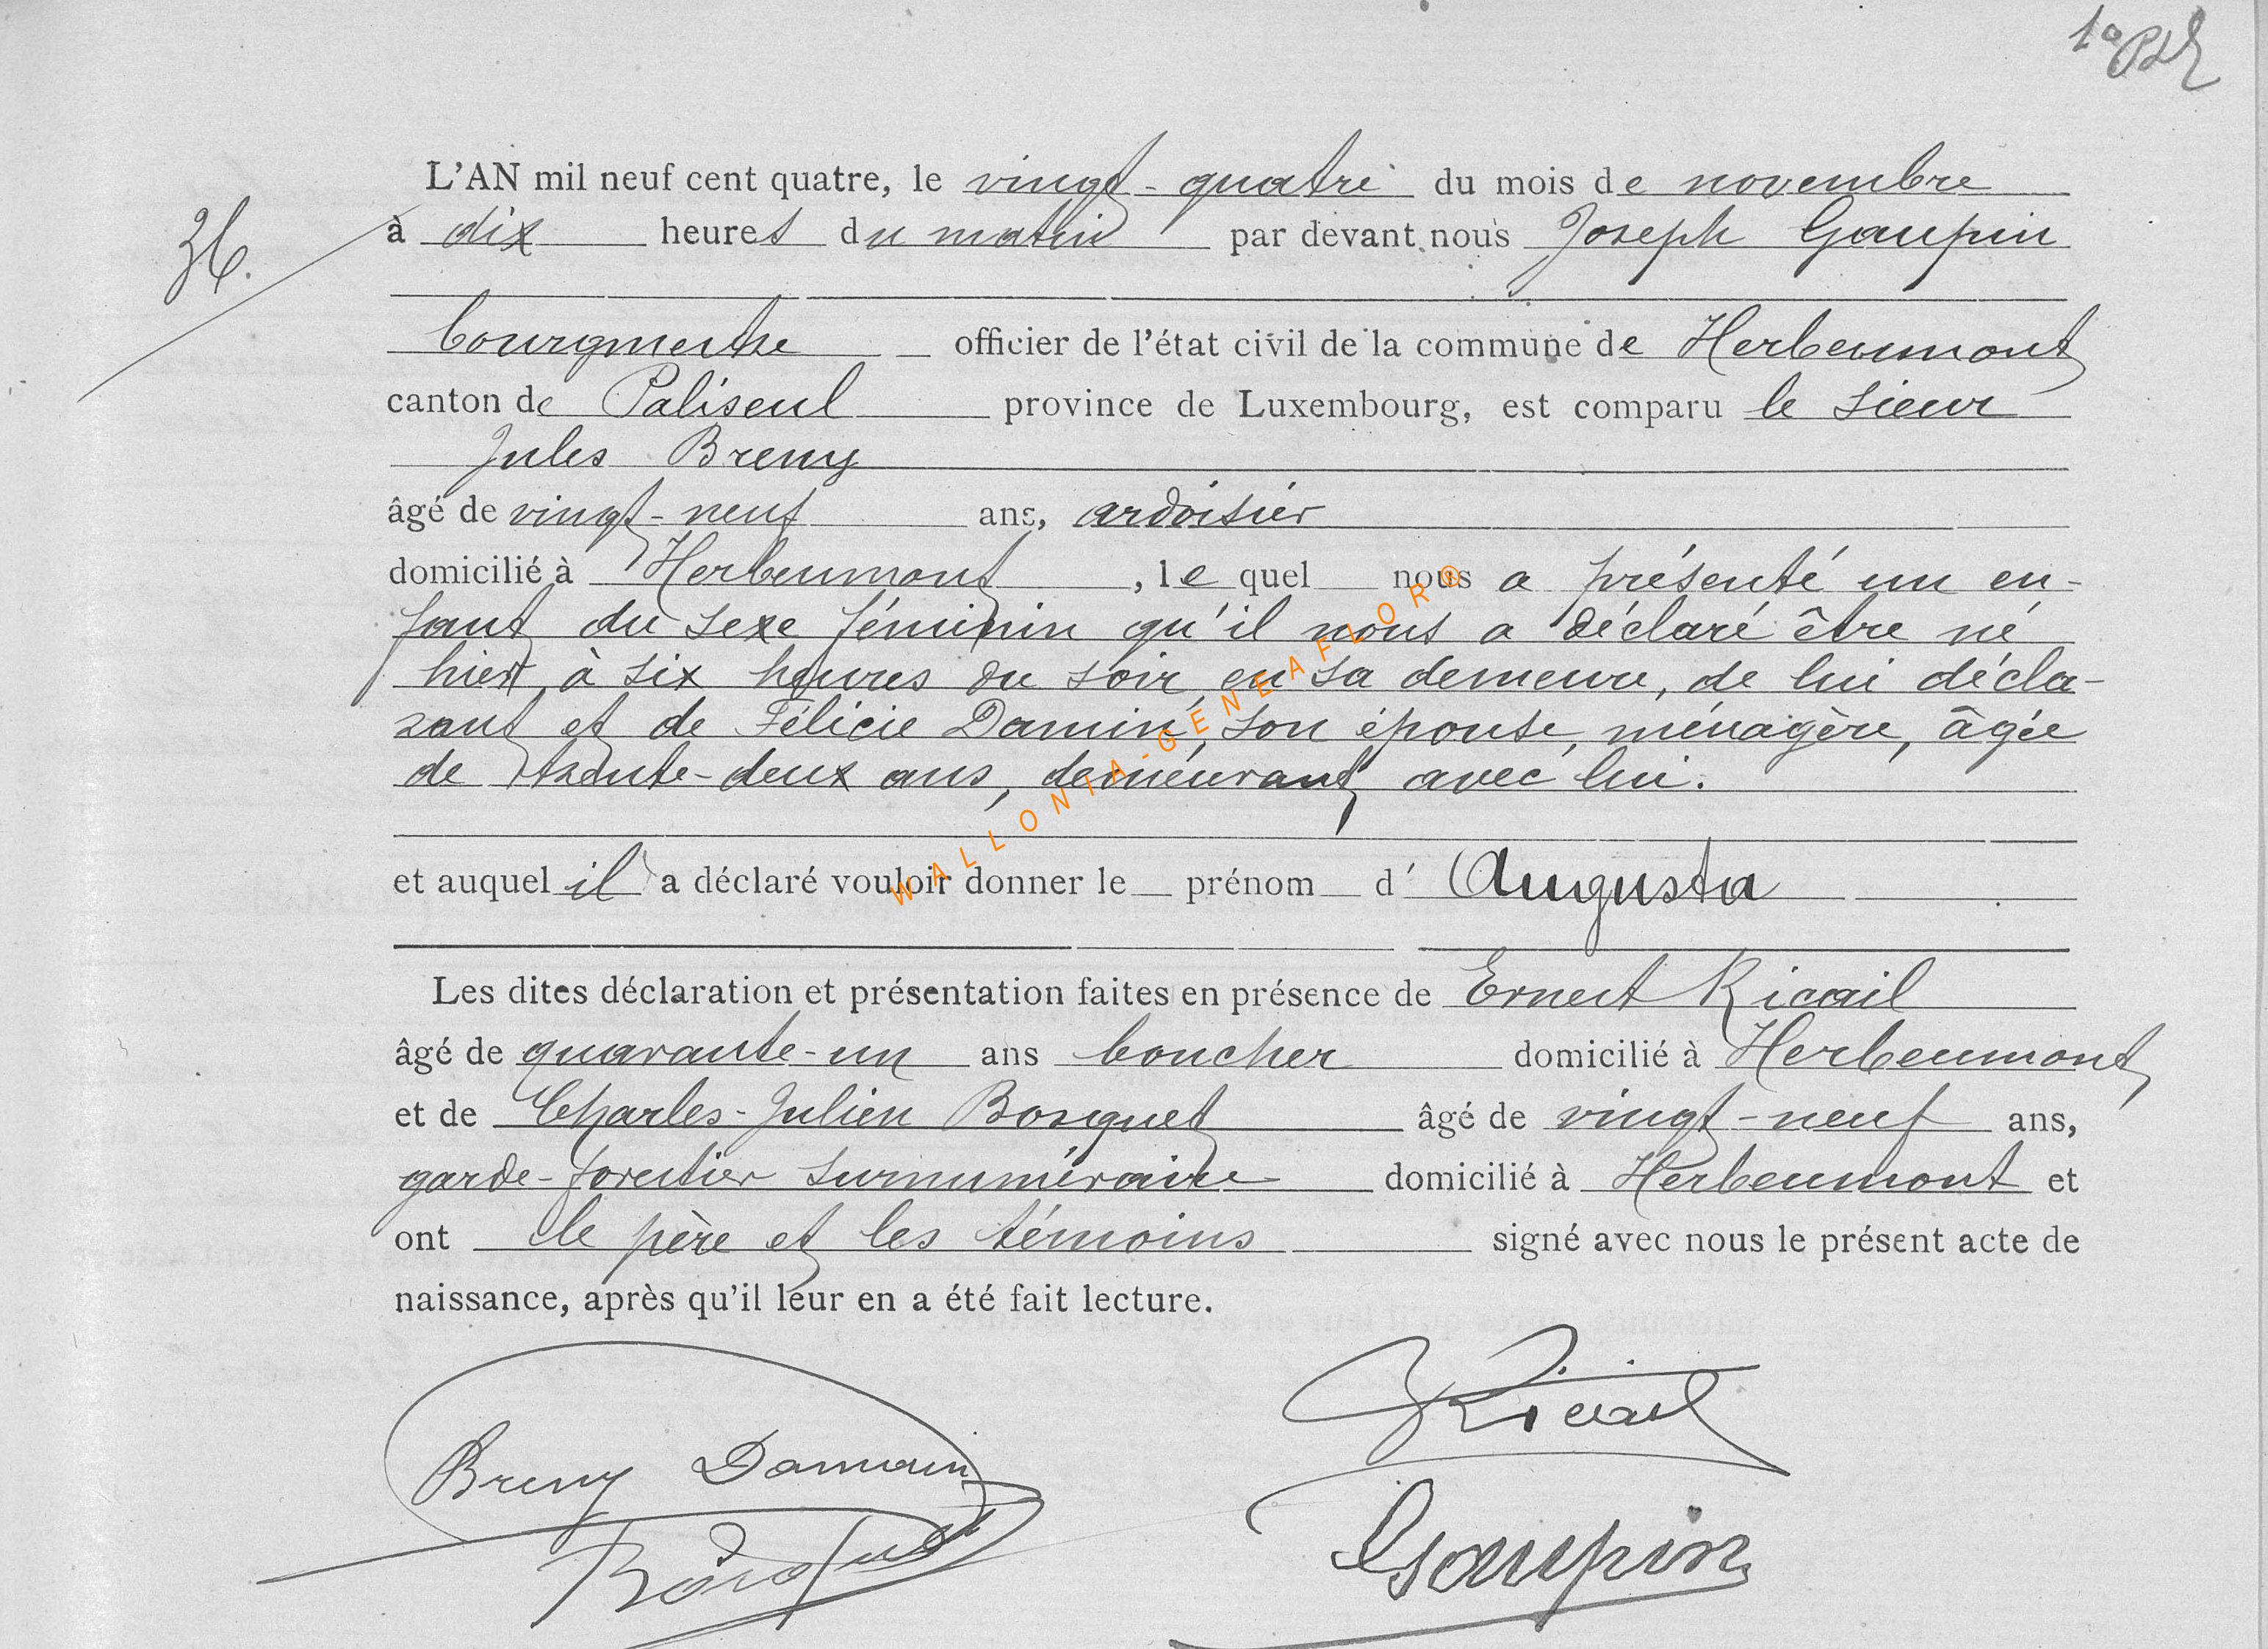 36.
L'AN mil neuf cent quatre, le vingt-quatre du mois de novembre
à dix heures du matin par devant nous Joseph Gaupin
bourgmestre officier de l'état civil de la commune de Herbeumont
canton de Paliseul province de Luxembourg, est comparu le sieur
Jules Breny
âgé de vingt-neuf ans, ardoisier
domicilié à Herbeumont, le quel nous a présenté un en-
fant du sexe féminin qu'il nous a déclaré être né
hier, à six heures du soir, en sa demeure, de lui décla-
rant et de Félicie Damin, son épouse, ménagère, âgée
de trente-deux ans, demeurant avec lui.
et auquel il a déclaré vouloir donner le prénom d' Augusta
Les dites déclaration et présentation faites en présence de Ernest Ricail
âgé de quarante-un ans boucher domicilié à Herbeumont
et de Charles-Julien Bosquet âgé de vingt-neuf ans,
garde-forestier surnuméraire domicilié à Herbeumont et
ont le père et les témoins signé avec nous le présent acte de
naissance, après qu'il leur en a été fait lecture.
Ricail
Breny Damain
Bosquet
Gaupin
WALLONIA-GENEAFLOR®